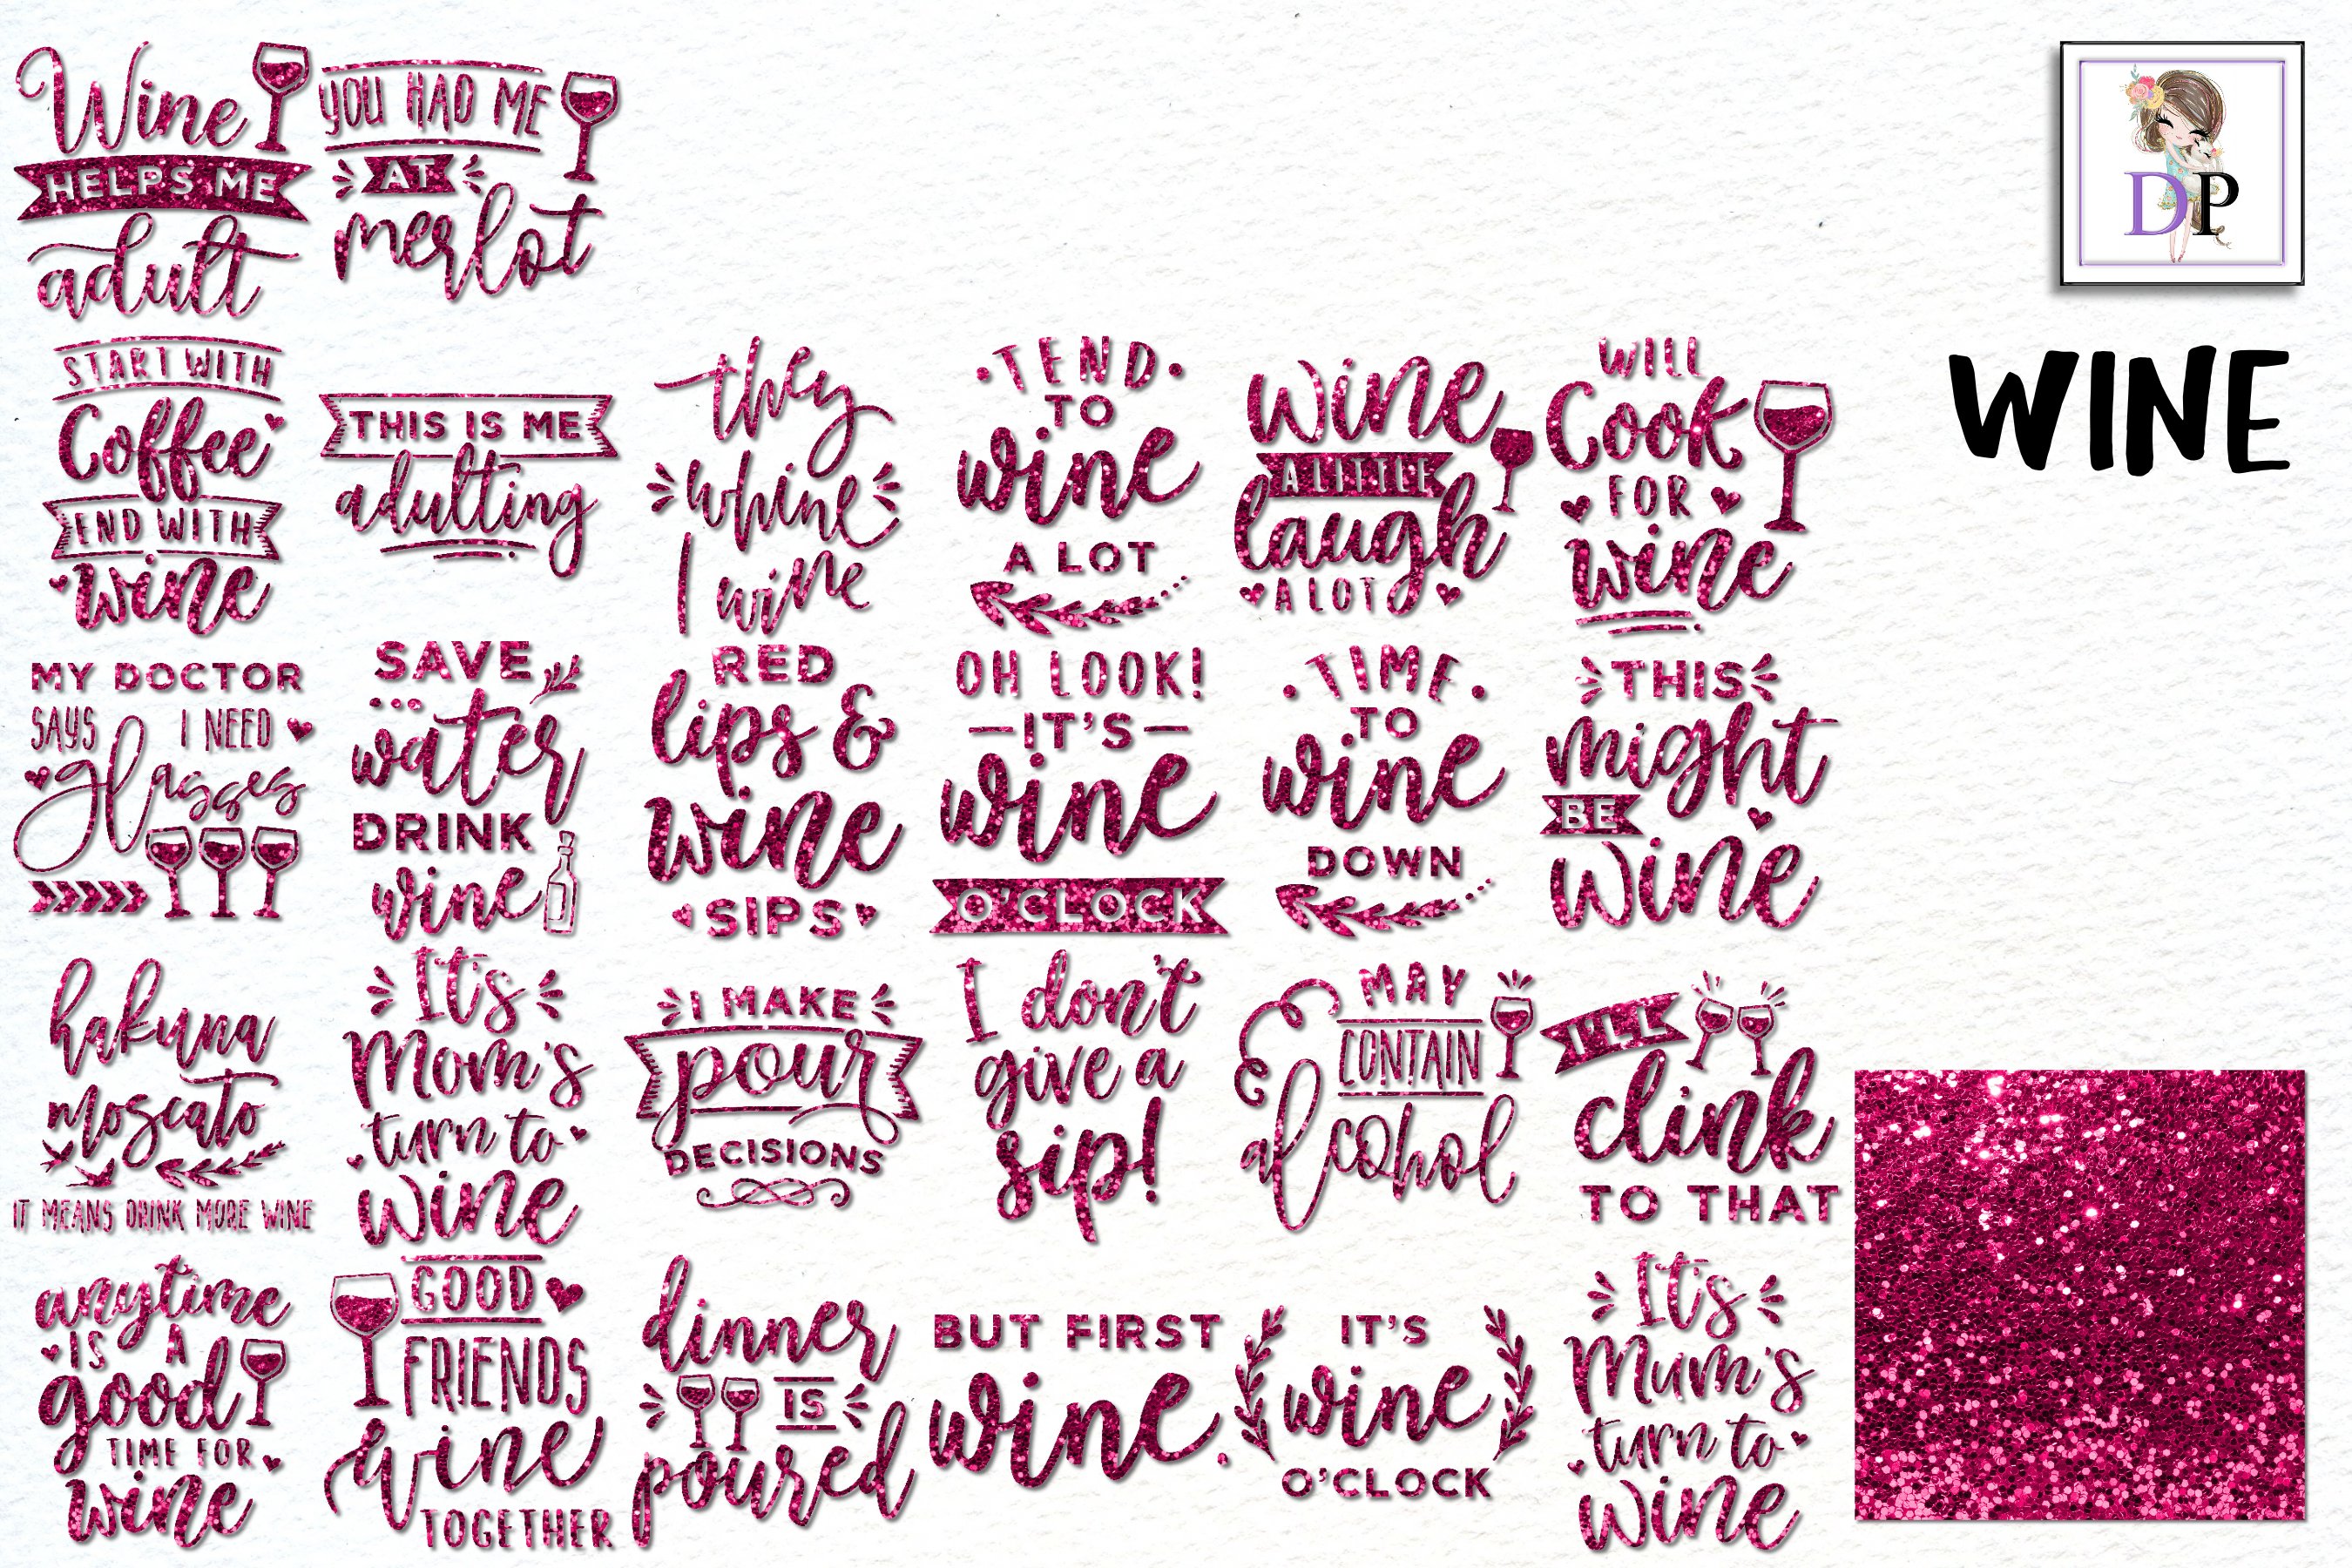 Wine
HELPS ME
adult
YOU HAD ME
AT
merlot
DP
START WITH
Coffee
END WITH
wine
THIS IS ME
adulting
they
whine
I wine
TEND
TO
wine
A LOT
wine
A LITTLE
laugh
A LOT
WILL
Cook
FOR
wine
WINE
MY DOCTOR
SAYS I NEED
glasses
SAVE
water
DRINK
wine
RED
lips &
wine
SIPS
OH LOOK!
IT'S
wine
O'CLOCK
TIME
TO
wine
DOWN
THIS
might
BE
wine
hakuna
moscato
IT MEANS DRINK MORE WINE
It's
Mom's
turn to
wine
I MAKE
pour
DECISIONS
I don't
give a
sip!
MAY
CONTAIN
alcohol
I'LL
clink
TO THAT
anytime
IS A
good
TIME FOR
wine
GOOD
FRIENDS
wine
TOGETHER
dinner
IS
poured
BUT FIRST
wine.
IT'S
wine
O'CLOCK
It's
Mum's
turn to
wine